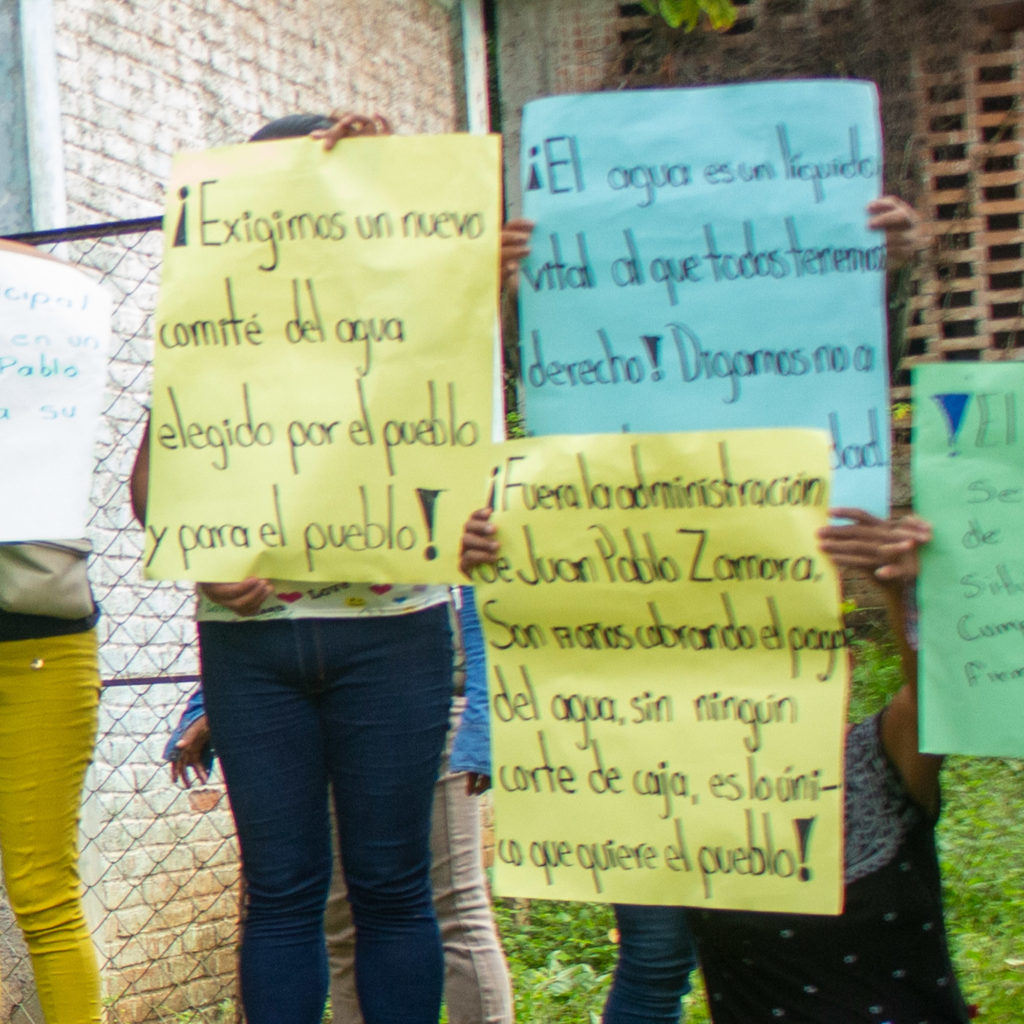 cipal
en un
Pablo
a su
¡Exigimos un nuevo
comité del agua
elegido por el pueblo
y para el pueblo!
¡El agua es un líquido
vital al que todos tenemos
derecho! Digamos no a
dad
¡Fuera la administración
de Juan Pablo Zamora,
Son 17 años cobrando el pago
del agua, sin ningún
corte de caja, es lo úni-
co que quiere el pueblo!
¡El
Se
de